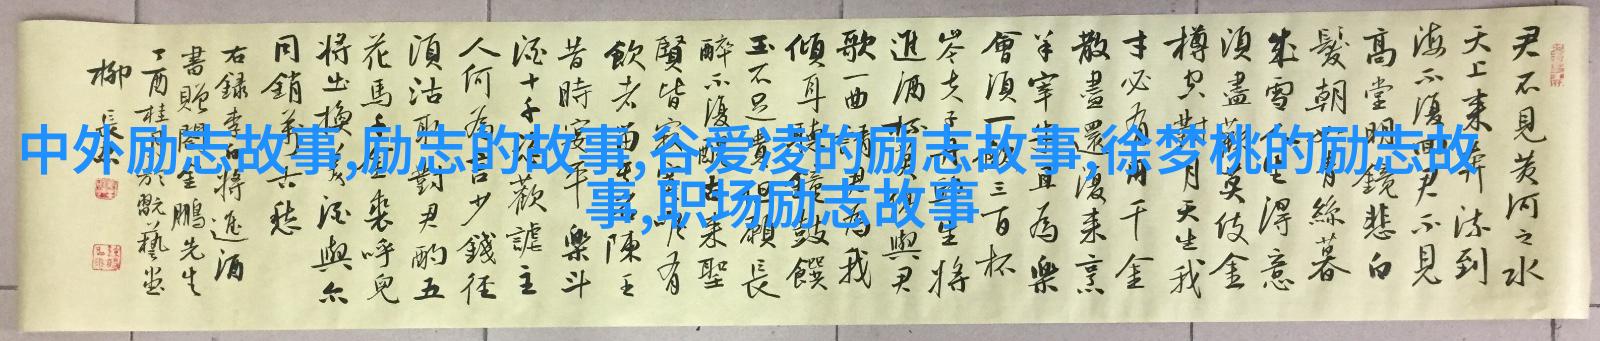 君不见黄河之水
天上来奔流到
海不復回君不见
高堂明鏡悲白
髮朝如青絲暮
成雪人生得意
須盡歡莫使金
樽空對月天生我
才必有用千金
散盡還復来烹
羊宰牛且為樂
會須一飲三百杯
岑夫子丹丘生将
進酒杯莫停與君
歌一曲請君為我
傾耳聽鐘鼓饌
玉不足貴但願長
醉不復醒古来聖
賢皆寂寞唯有
飲者留其名陳王
昔時宴平樂斗
酒十千恣歡謔主
人何為言少錢径
須沽取對君酌五
花馬千金裘呼兒
将出换美酒與尔
同銷萬古愁
右録李白将進酒
書贈閣金鵬先生
丁酉桂月於
柳
中外励志故事,励志的故事,谷爱凌的励志故事,徐梦桃的励志故
事,职场励志故事